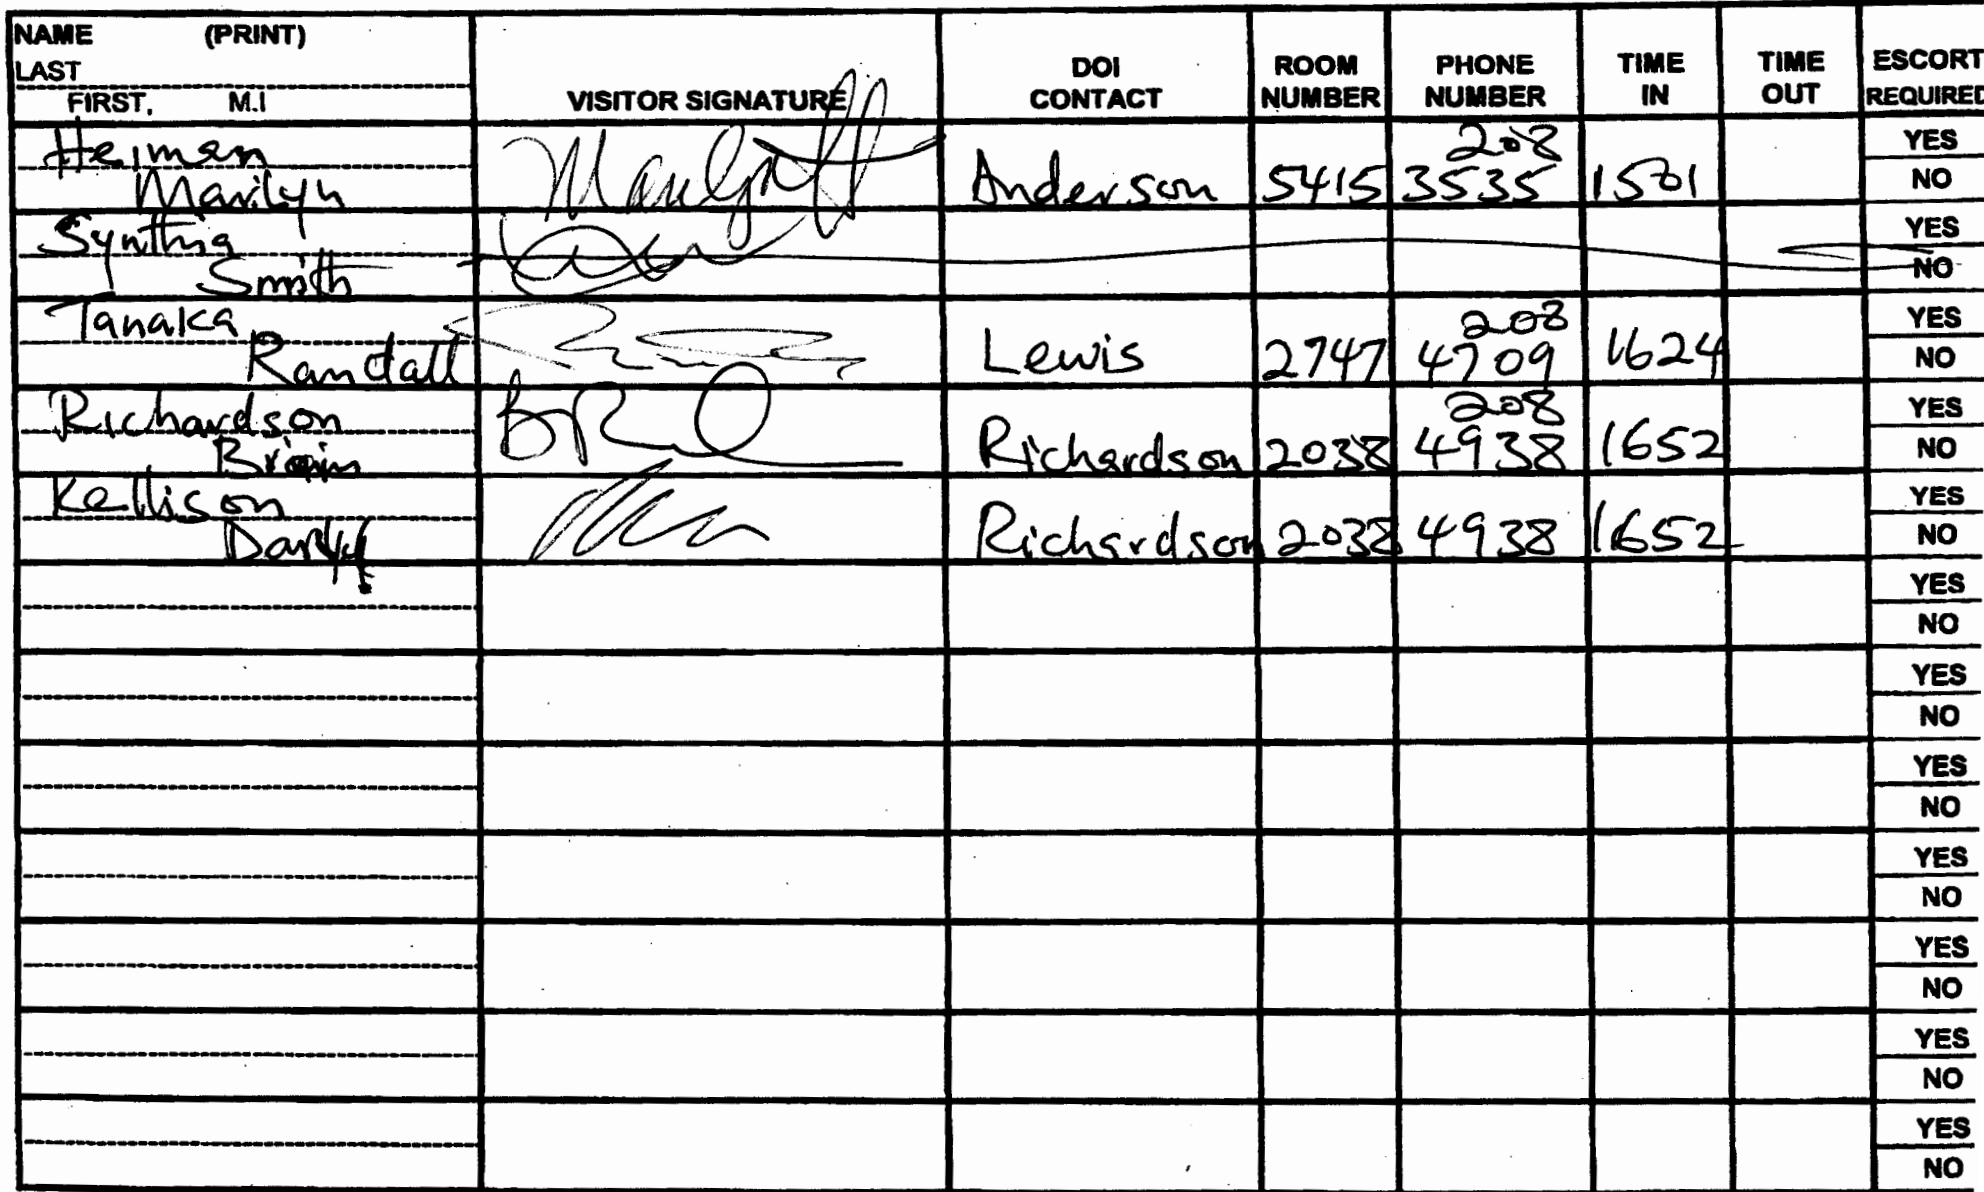 NAME (PRINT)
LAST
FIRST, M.I
VISITOR SIGNATURE
DOI CONTACT
ROOM NUMBER
PHONE NUMBER
TIME IN
TIME OUT
ESCORT REQUIRED
Heiman 208 YES
Marilyn Anderson 5415 3535 1501 NO
Synthia YES
Smith NO
Tanaka 208 YES
Randall Lewis 2747 4709 1624 NO
Richardson 208 YES
Brian Richardson 2038 4938 1652 NO
Kellison YES
Richardson 2038 4938 1652 NO
YES
NO
YES
NO
YES
NO
YES
NO
YES
NO
YES
NO
YES
NO